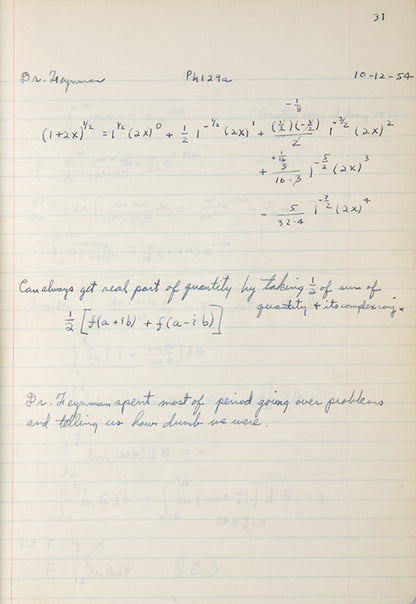 31
Dr. Feynman Ph129a 10-12-54
-1/8
(1+2x)^{1/2} = 1^{1/2} (2x)^0 + 1/2 1^{-1/2} (2x)^1 + (1/2)(-1/2)/2 1^{-3/2} (2x)^2
+1/16
+ 3/(16·3) 1^{-5/2} (2x)^3
- 5/(32·4) 1^{-7/2} (2x)^4
Can always get real part of quantity by taking 1/2 of sum of
quantity + its complex conj.
1/2 [f(a+ib) + f(a-ib)]
Dr. Feynman spent most of period going over problems
and telling us how dumb we were.